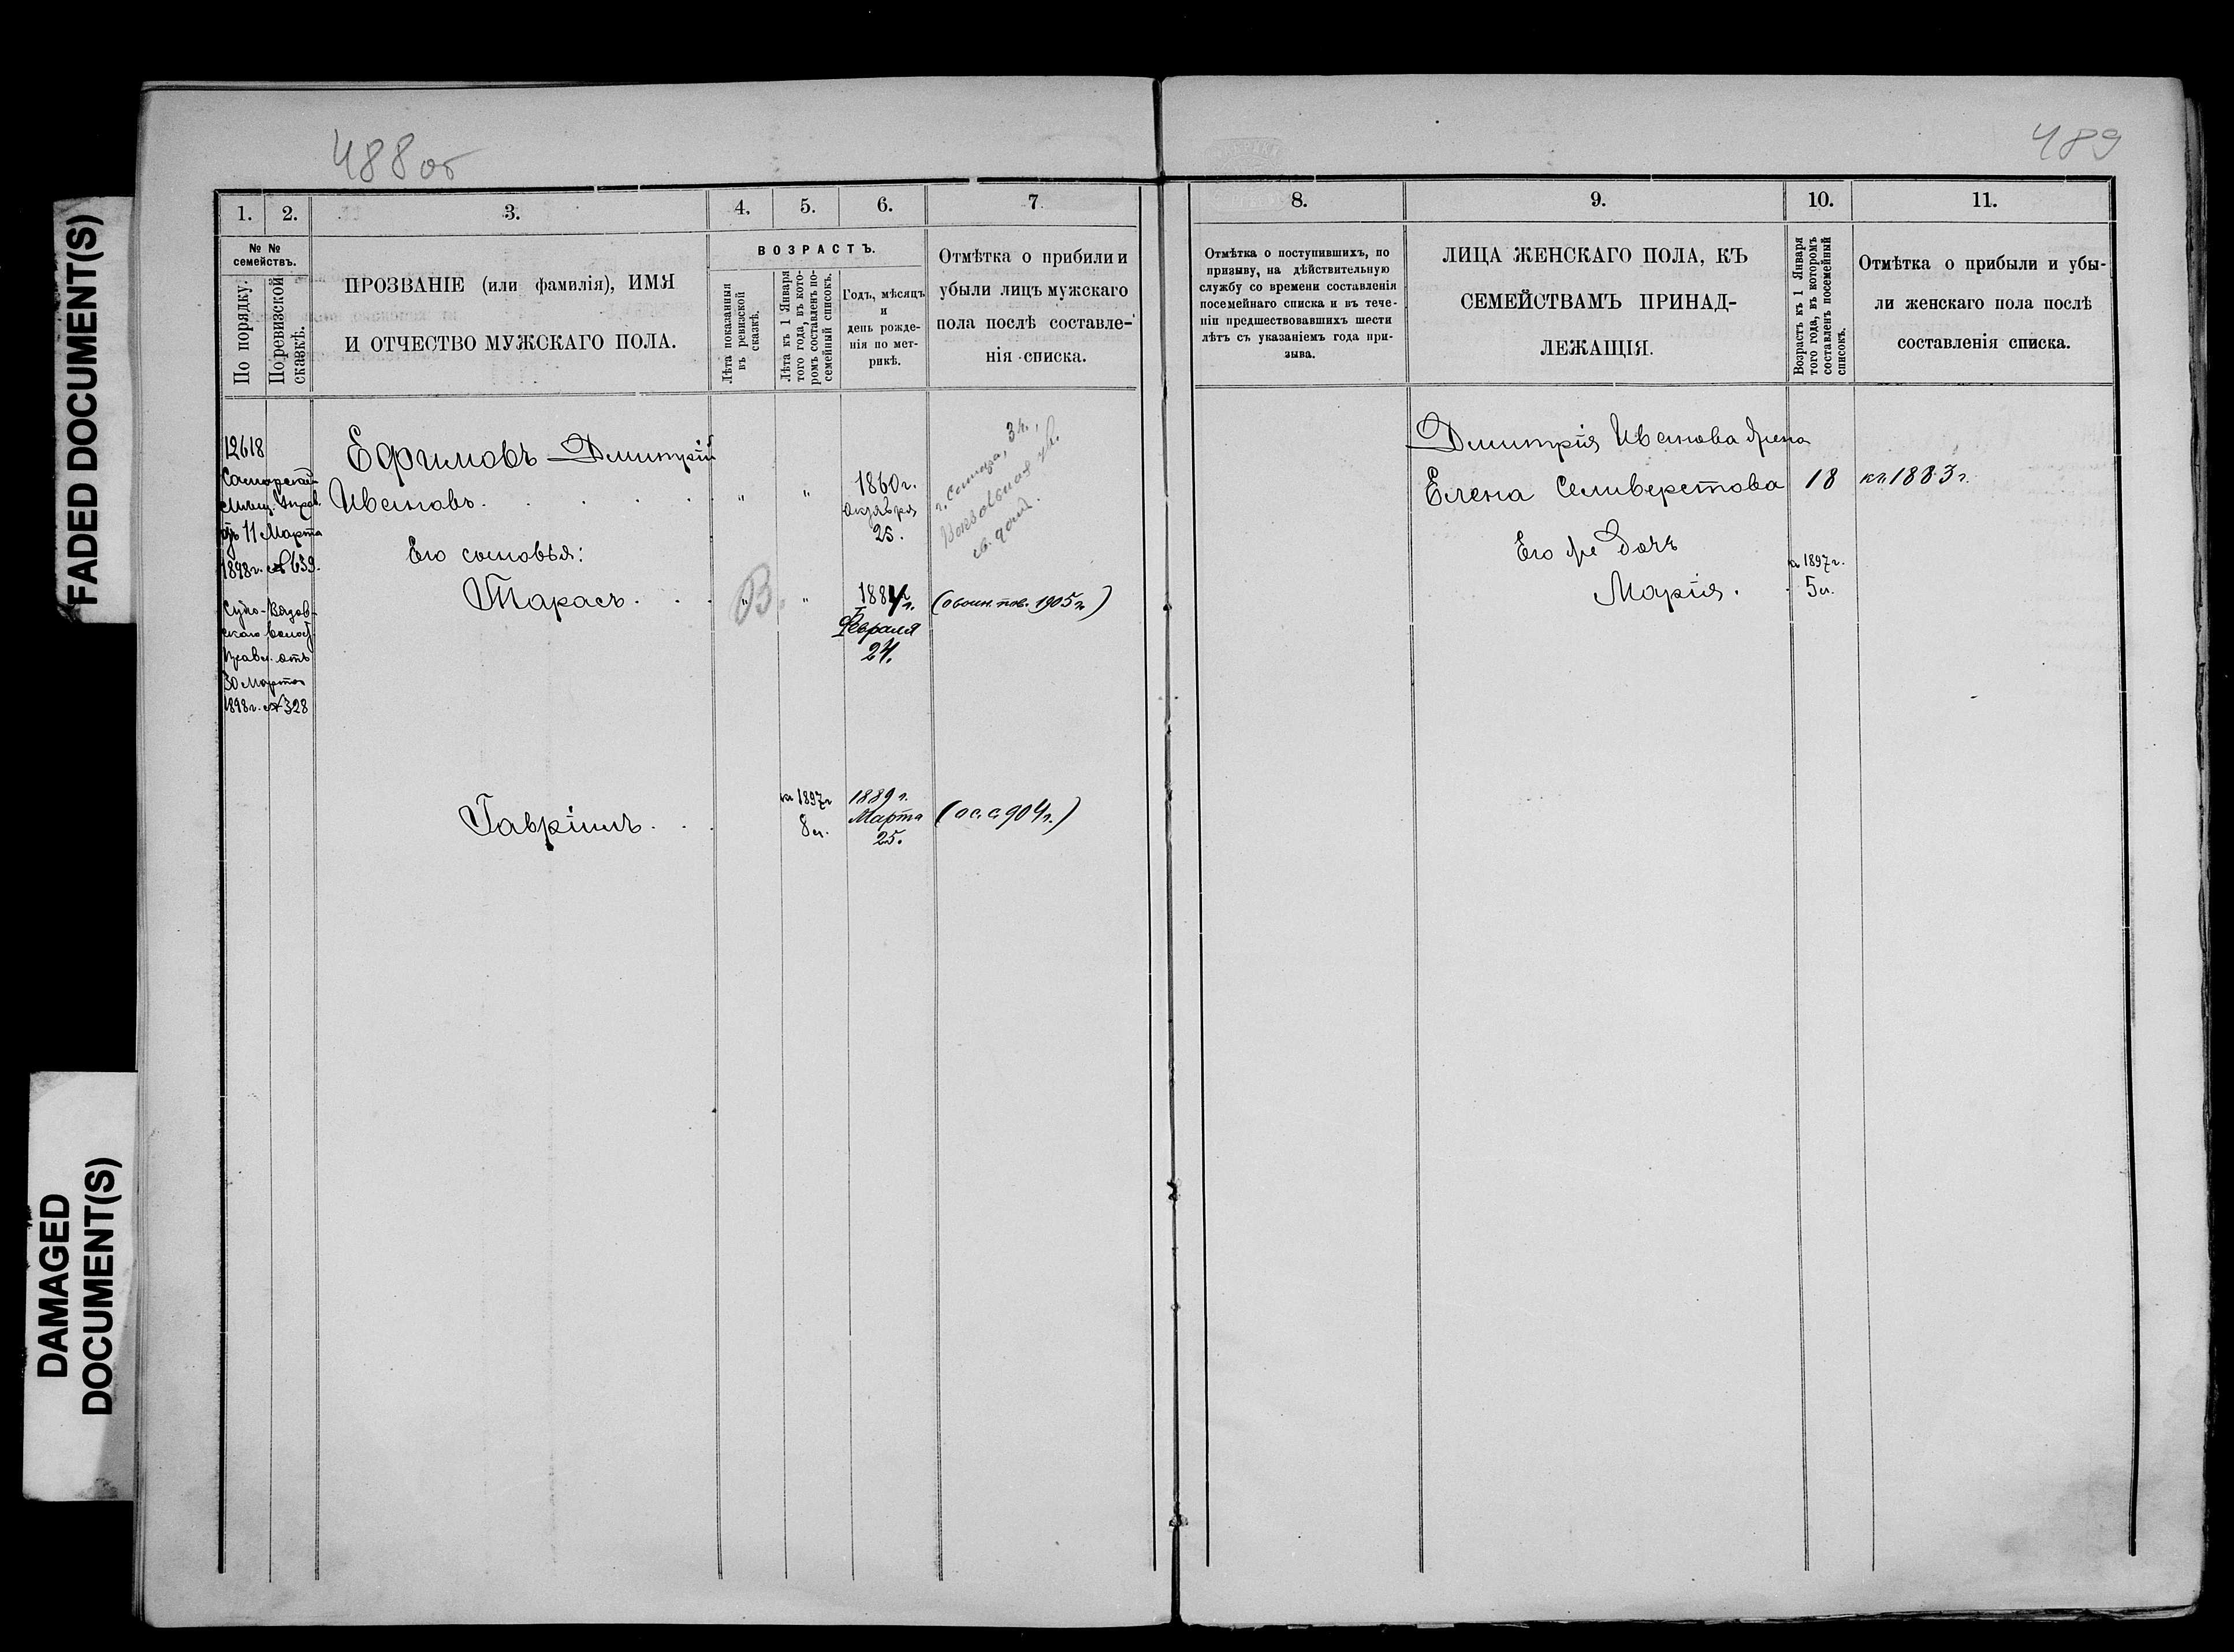 FADED DOCUMENT(S)
DAMAGED
DOCUMENT(S)
488об
1.
2.
3.
4.
5.
6.
7.
№ №
семействъ.
По порядку.
По ревизской
сказкѣ.
ПРОЗВАНІЕ (или фамилія), ИМЯ
И ОТЧЕСТВО МУЖСКАГО ПОЛА.
ВОЗРАСТЪ.
Лѣта показанныя
въ ревизской
сказкѣ.
Лѣта къ 1 Января
того года, въ кото-
ромъ составленъ по-
семейный списокъ.
Годъ, мѣсяцъ
и
день рожде-
нія по мет-
рикѣ.
Отмѣтка о прибыли и
убыли лицъ мужскаго
пола послѣ составле-
нія списка.
12618
Самарской
Мѣщ. Управ.
отъ 11 Марта
1898г. № 659.
Сухо-Вязов-
скаго Волост.
Правл. отъ
30 Марта
1898г. № 328
Ефимовъ Дмитрій
Ивановъ.
"
"
1860г.
Октября
25.
г. Самара, 3 ч.,
Вокзальная ул.
св. домъ.
Его сыновья:
Тарасъ.
В.
"
"
1884г.
Февраля
24.
(воин. пов. 1905г.)
Гавріилъ.
на 1897г
8л.
1889г.
Марта
25.
489
8.
9.
10.
11.
Отмѣтка о поступившихъ, по
призыву, на дѣйствительную
службу со времени составленія
посемейнаго списка и въ тече-
ніи предшествовавшихъ шести
лѣтъ съ указаніемъ года при-
зыва.
ЛИЦА ЖЕНСКАГО ПОЛА, КЪ
СЕМЕЙСТВАМЪ ПРИНАД-
ЛЕЖАЩІЯ.
Возрастъ къ 1 Января
того года, въ которомъ
составленъ посемейный
списокъ.
Отмѣтка о прибыли и убы-
ли женскаго пола послѣ
составленія списка.
Дмитрія Иванова жена
Елена Селиверстова
18
на 1883г.
Его же дочь
Марія.
на 1897г.
5л.